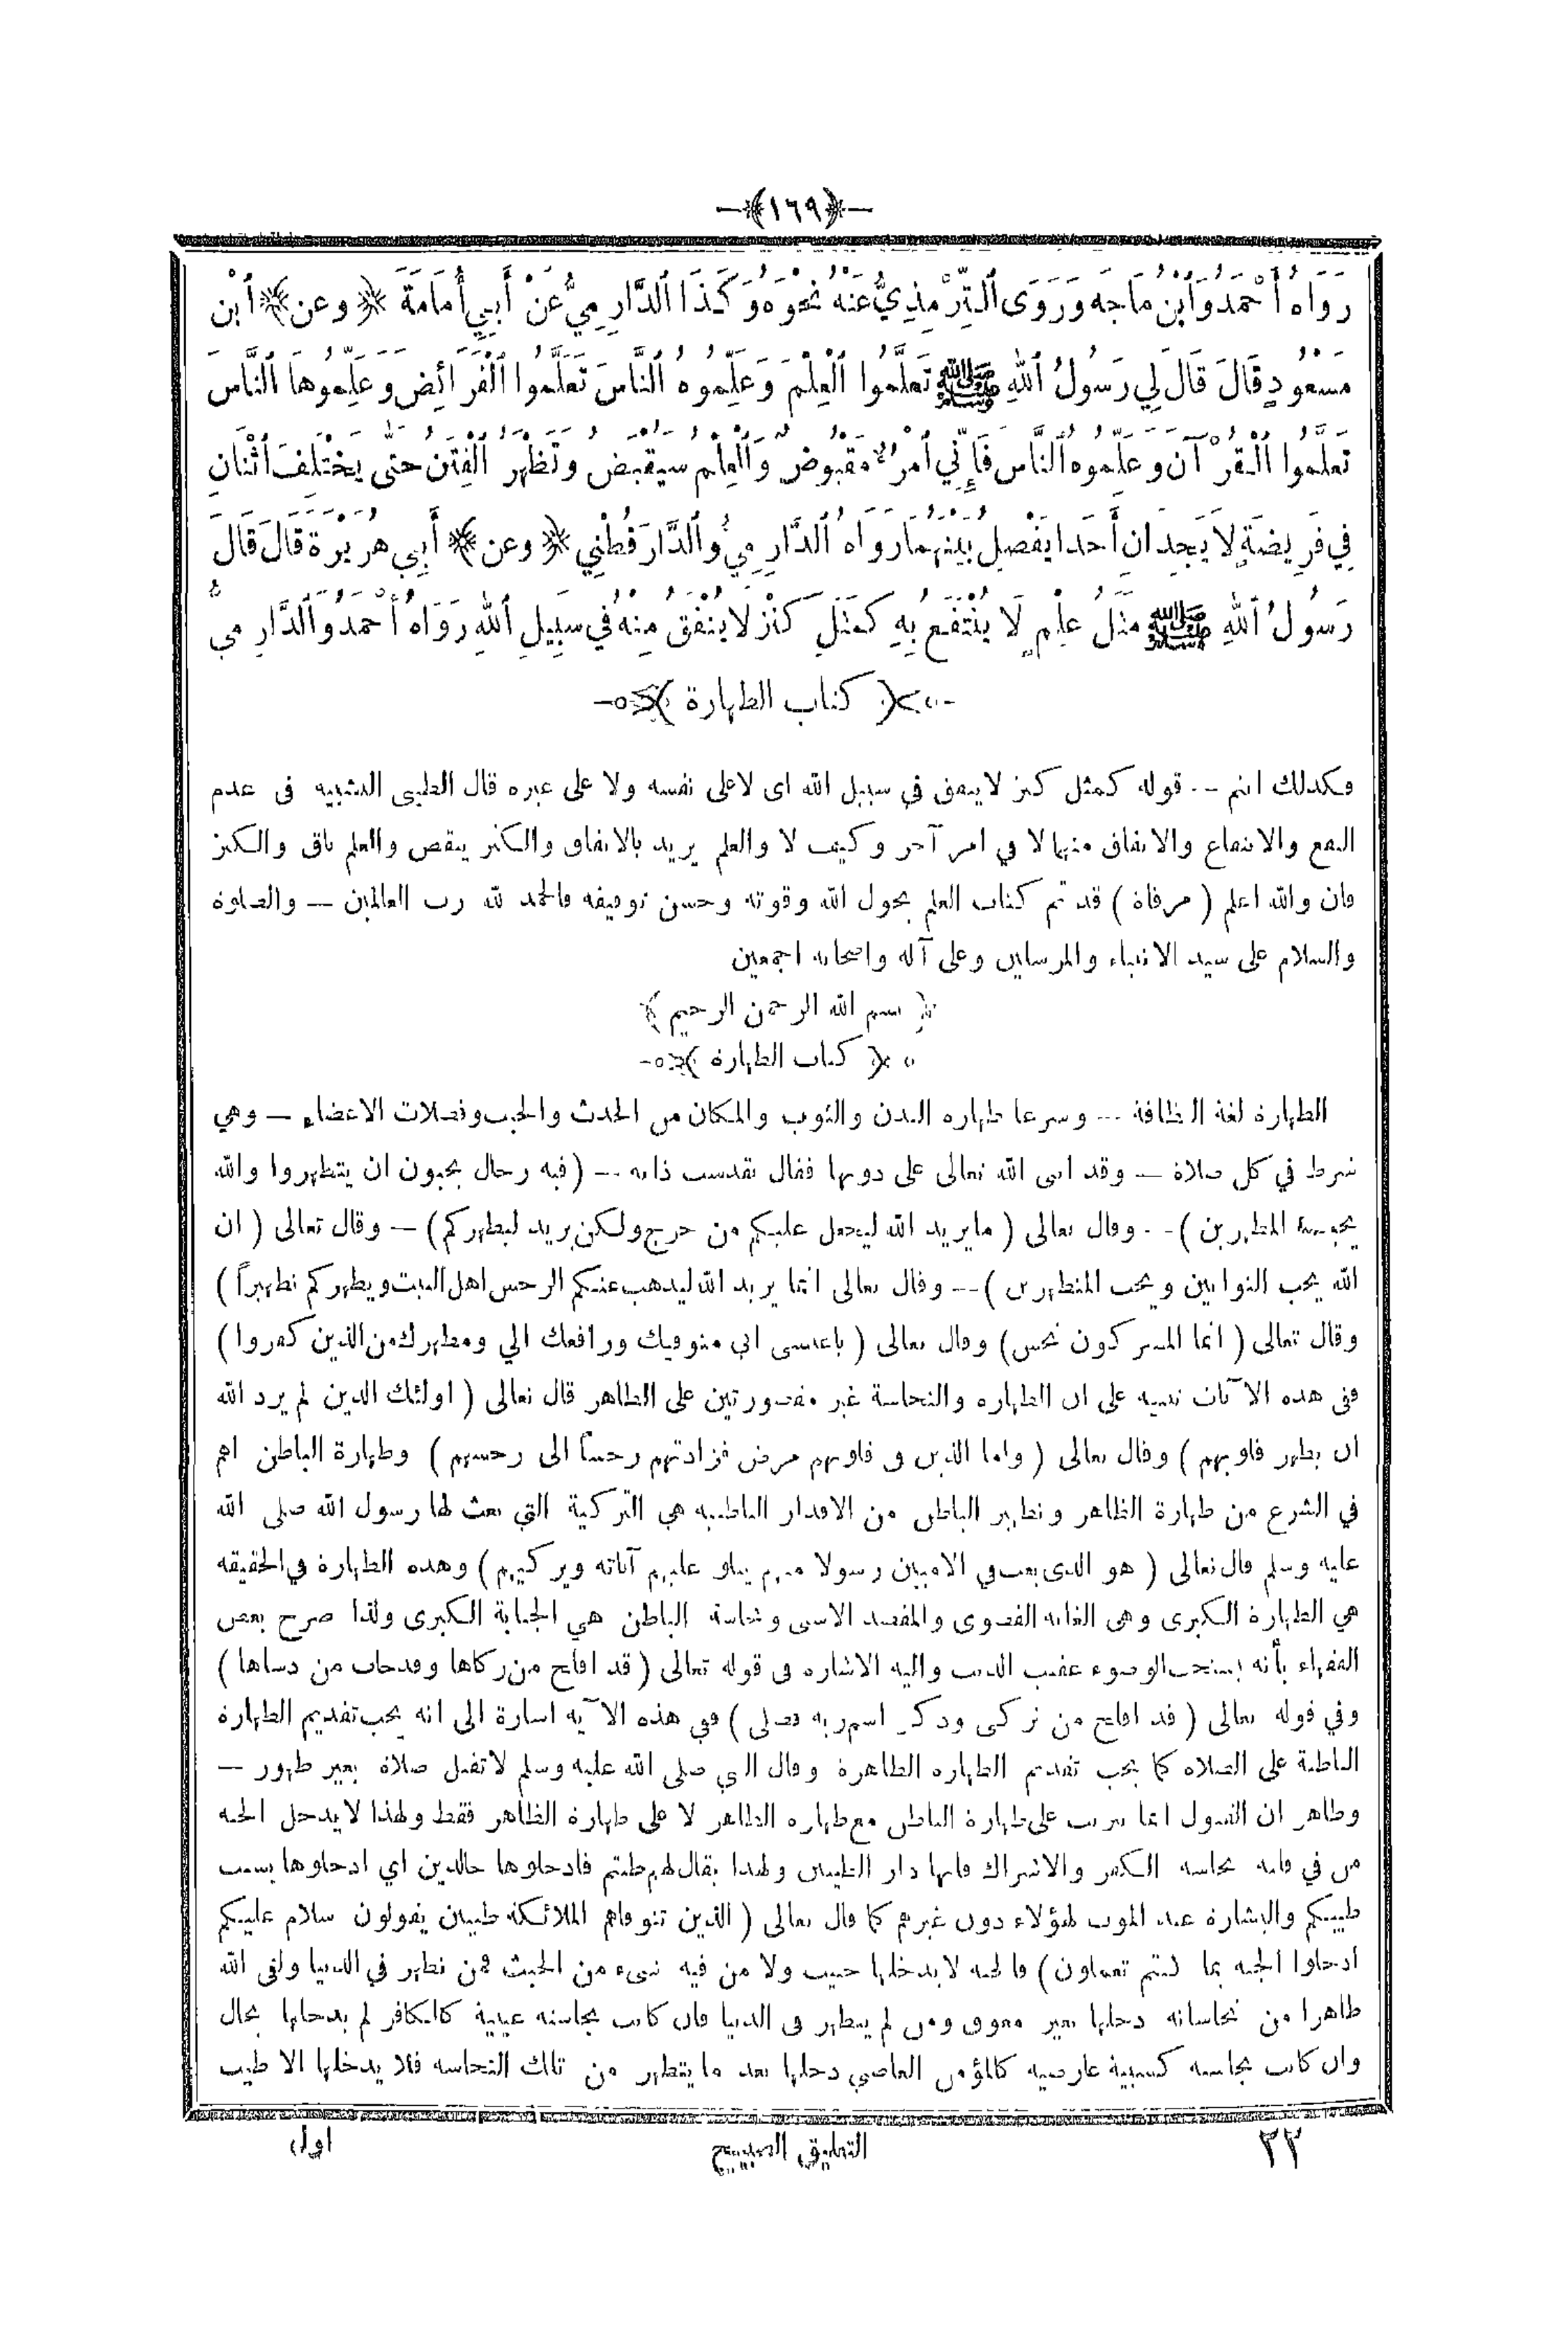 ﴿١٦٩﴾
رَوَاهُ أَحْمَدُ وَابْنُ مَاجَه وَرَوَى ٱلتِّرْمِذِيُّ عَنْهُ نَحْوَهُ وَكَذَا ٱلدَّارِمِيُّ عَنْ أَبِي أُمَامَةَ ﴿ وعن ﴾ ٱبْنِ
مَسْعُودٍ قَالَ قَالَ لِي رَسُولُ ٱللهِ ﷺ تَعَلَّمُوا ٱلْعِلْمَ وَعَلِّمُوهُ ٱلنَّاسَ تَعَلَّمُوا ٱلْفَرَائِضَ وَعَلِّمُوهَا ٱلنَّاسَ
تَعَلَّمُوا ٱلْقُرْآنَ وَعَلِّمُوهُ ٱلنَّاسَ فَإِنِّي ٱمْرُؤٌ مَقْبُوضٌ وَٱلْعِلْمُ سَيُقْبَضُ وَتَظْهَرُ ٱلْفِتَنُ حَتَّى يَخْتَلِفَ ٱثْنَانِ
فِي فَرِيضَةٍ لاَ يَجِدَانِ أَحَدًا يَفْصِلُ بَيْنَهُمَا رَوَاهُ ٱلدَّارِمِيُّ وَٱلدَّارَقُطْنِي ﴿ وعن ﴾ أَبِي هُرَيْرَةَ قَالَ قَالَ
رَسُولُ ٱللهِ ﷺ مَثَلُ عِلْمٍ لَا يُنْتَفَعُ بِهِ كَمَثَلِ كَنْزٍ لاَ يُنْفَقُ مِنْهُ فِي سَبِيلِ ٱللهِ رَوَاهُ أَحْمَدُ وَٱلدَّارِمِيُّ
﴿ كتاب الطهارة ﴾
فكذلك انتم -- قوله كمثل كنز لاينفق في سبيل الله اى لاعلى نفسه ولا على غيره قال الطيبى التشبيه فى عدم
النفع والانتفاع والانفاق منهما لا في امر آخر وكيف لا والعلم يزيد بالانفاق والكنز ينقص والعلم باق والكنز
فان والله اعلم ( مرقاة ) قد تم كتاب العلم بحول الله وقوته وحسن توفيقه فالحمد لله رب العالمين — والصلوة
والسلام على سيد الانبياء والمرسلين وعلى آله واصحابه اجمعين
﴿ بسم الله الرحمن الرحيم ﴾
﴿ كتاب الطهارة ﴾
الطهارة لغة النظافة -- وشرعا طهاره البدن والثوب والمكان من الحدث والخبث وفضلات الاعضاء — وهي
شرط في كل صلاة — وقد اثنى الله تعالى على ذويها فقال تقدست ذاته -- (فيه رجال يحبون ان يتطهروا والله
يحب المطهرين ) -- وقال تعالى ( مايريد الله ليجعل عليكم من حرج ولكن يريد ليطهركم) — وقال تعالى ( ان
الله يحب التوابين ويحب المتطهرين ) -- وقال تعالى انما يريد الله ليذهب عنكم الرجس اهل البيت ويطهركم تطهيراً )
وقال تعالى ( انما المشركون نجس) وقال تعالى ( ياعيسى اني متوفيك ورافعك الي ومطهرك من الذين كفروا )
ففى هذه الآيات تنبيه على ان الطهاره والنجاسة غير مقصورتين على الظاهر قال تعالى ( اولئك الذين لم يرد الله
ان يطهر قلوبهم ) وقال تعالى ( واما الذين فى قلوبهم مرض فزادتهم رجساً الى رجسهم ) وطهارة الباطن اهم
في الشرع من طهارة الظاهر وتطهير الباطن من الاقذار الباطنيه هي التزكية التي بعث لها رسول الله صلى الله
عليه وسلم قال تعالى ( هو الذى بعث في الاميين رسولا منهم يتلو عليهم آياته ويزكيهم ) وهذه الطهارة في الحقيقه
هي الطهارة الكبرى وهى الغايه القصوى والمقصد الاسنى ونجاسة الباطن هي الجنابة الكبرى ولذا صرح بعض
الفقهاء بأنه يستحب الوضوء عقيب الذنب واليه الاشاره فى قوله تعالى ( قد افلح من زكاها وقد خاب من دساها )
وفي قوله تعالى ( قد افلح من تزكى وذكر اسم ربه فصلى ) ففي هذه الآيه اشارة الى انه يجب تقديم الطهارة
الباطنة على الصلاه كما يجب تقديم الطهاره الظاهرة وقال النبي صلى الله عليه وسلم لاتقبل صلاة بغير طهور —
وظاهر ان القبول انما يترتب على طهارة الباطن مع طهاره الظاهر لا على طهارة الظاهر فقط ولهذا لايدخل الجنه
من في قلبه نجاسه الكفر والاشراك فانها دار الطيبين ولهذا يقال لهم طبتم فادخلوها خالدين اي ادخلوها بسبب
طيبكم والبشارة عند الموت لهؤلاء دون غيرهم كما قال تعالى ( الذين تتوفاهم الملائكة طيبين يقولون سلام عليكم
ادخلوا الجنه بما كنتم تعملون ) فالجنه لايدخلها خبيث ولا من فيه شىء من الخبث فمن تطهر في الدنيا ولقى الله
طاهرا من نجاساته دخلها بغير معوق ومن لم يتطهر فى الدنيا فان كانت نجاسته عينية كالكافر لم يدخلها بحال
وان كانت نجاسته كسبية عارضيه كالمؤمن العاصي دخلها بعد مايتطهر من تلك النجاسه فلا يدخلها الا طيب
٢٢
التعليق الصبيح
اول